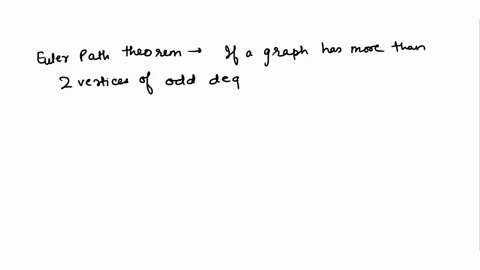 Euler Path theorem → If a graph has more than
2 vertices of odd deg